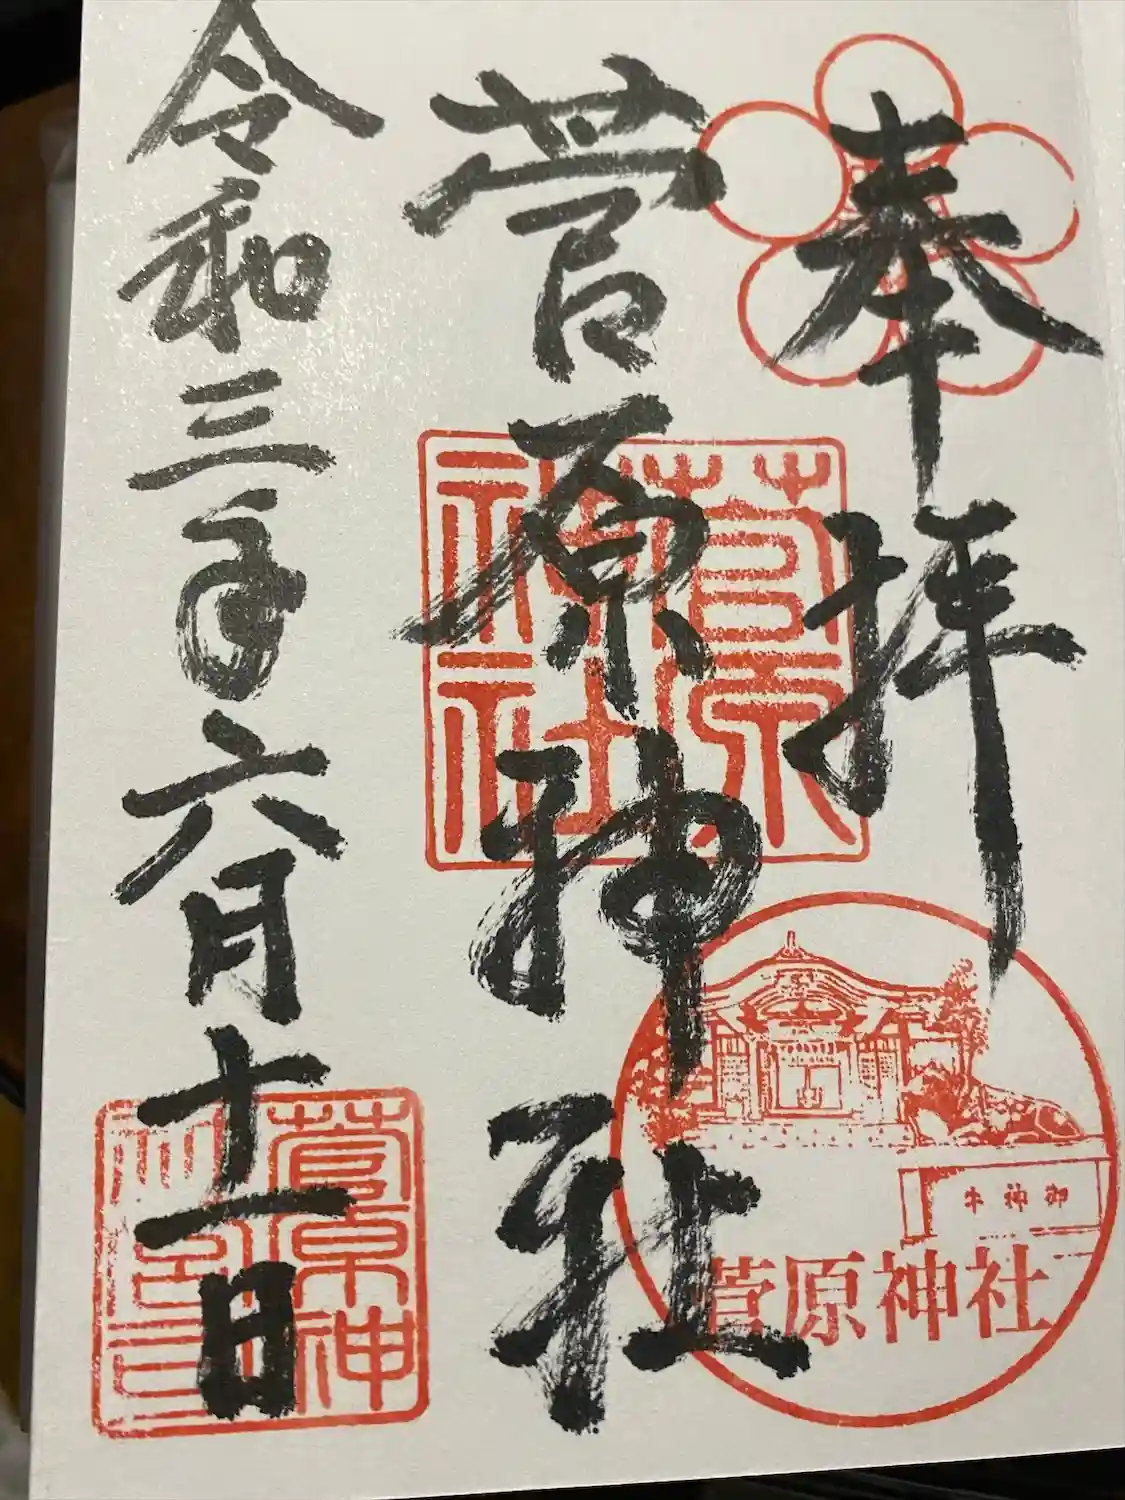 奉拝
菅原神社
令和三年六月十一日
菅原
神社
御神牛
菅原神社
菅原神